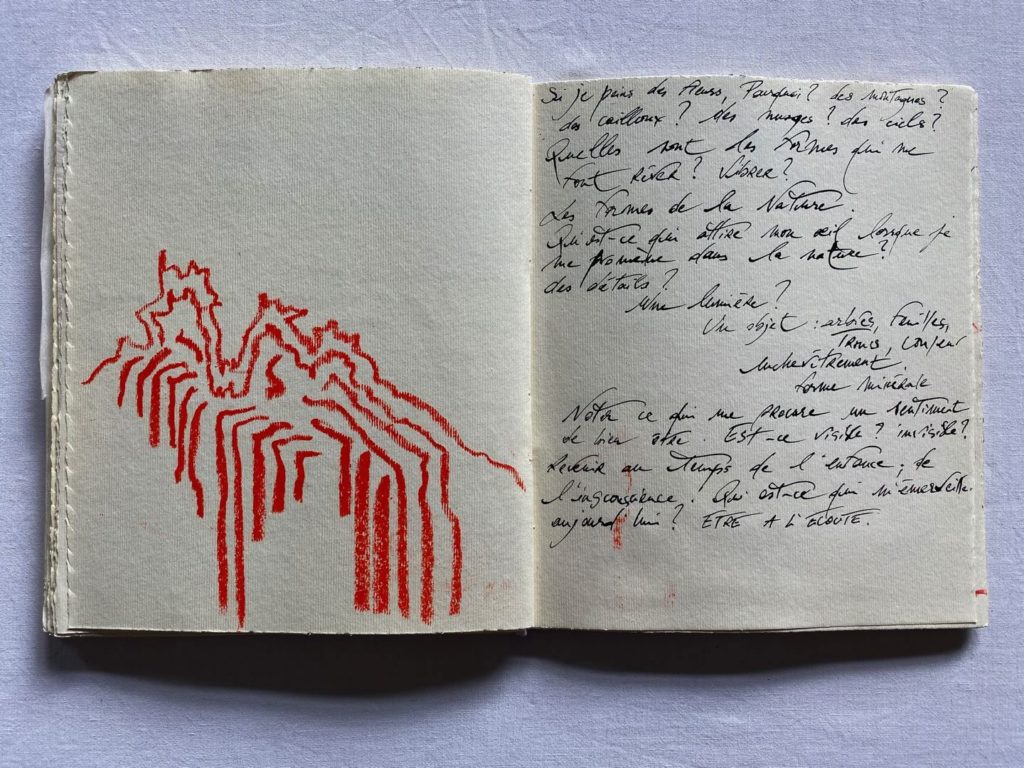 Si je peins des fleurs, Pourquoi ? des montagnes ?
des cailloux ? des nuages ? des ciels ?
Quelles sont les formes qui me
font RÊVER ? VIBRER ?
Les formes de la Nature.
Qu'est-ce qui attire mon œil lorsque je
me promène dans la nature ?
des détails ?
Une lumière ?
Un objet : arbres, feuilles,
TRONCS, couleur
enchevêtrement,
forme minérale
Noter ce qui me procure un sentiment
de bien être. Est-ce visible ? invisible ?
Revenir au temps de l'enfance, de
l'insouciance. Qu'est-ce qui m'émerveille
aujourd'hui ? ETRE A L'ECOUTE.